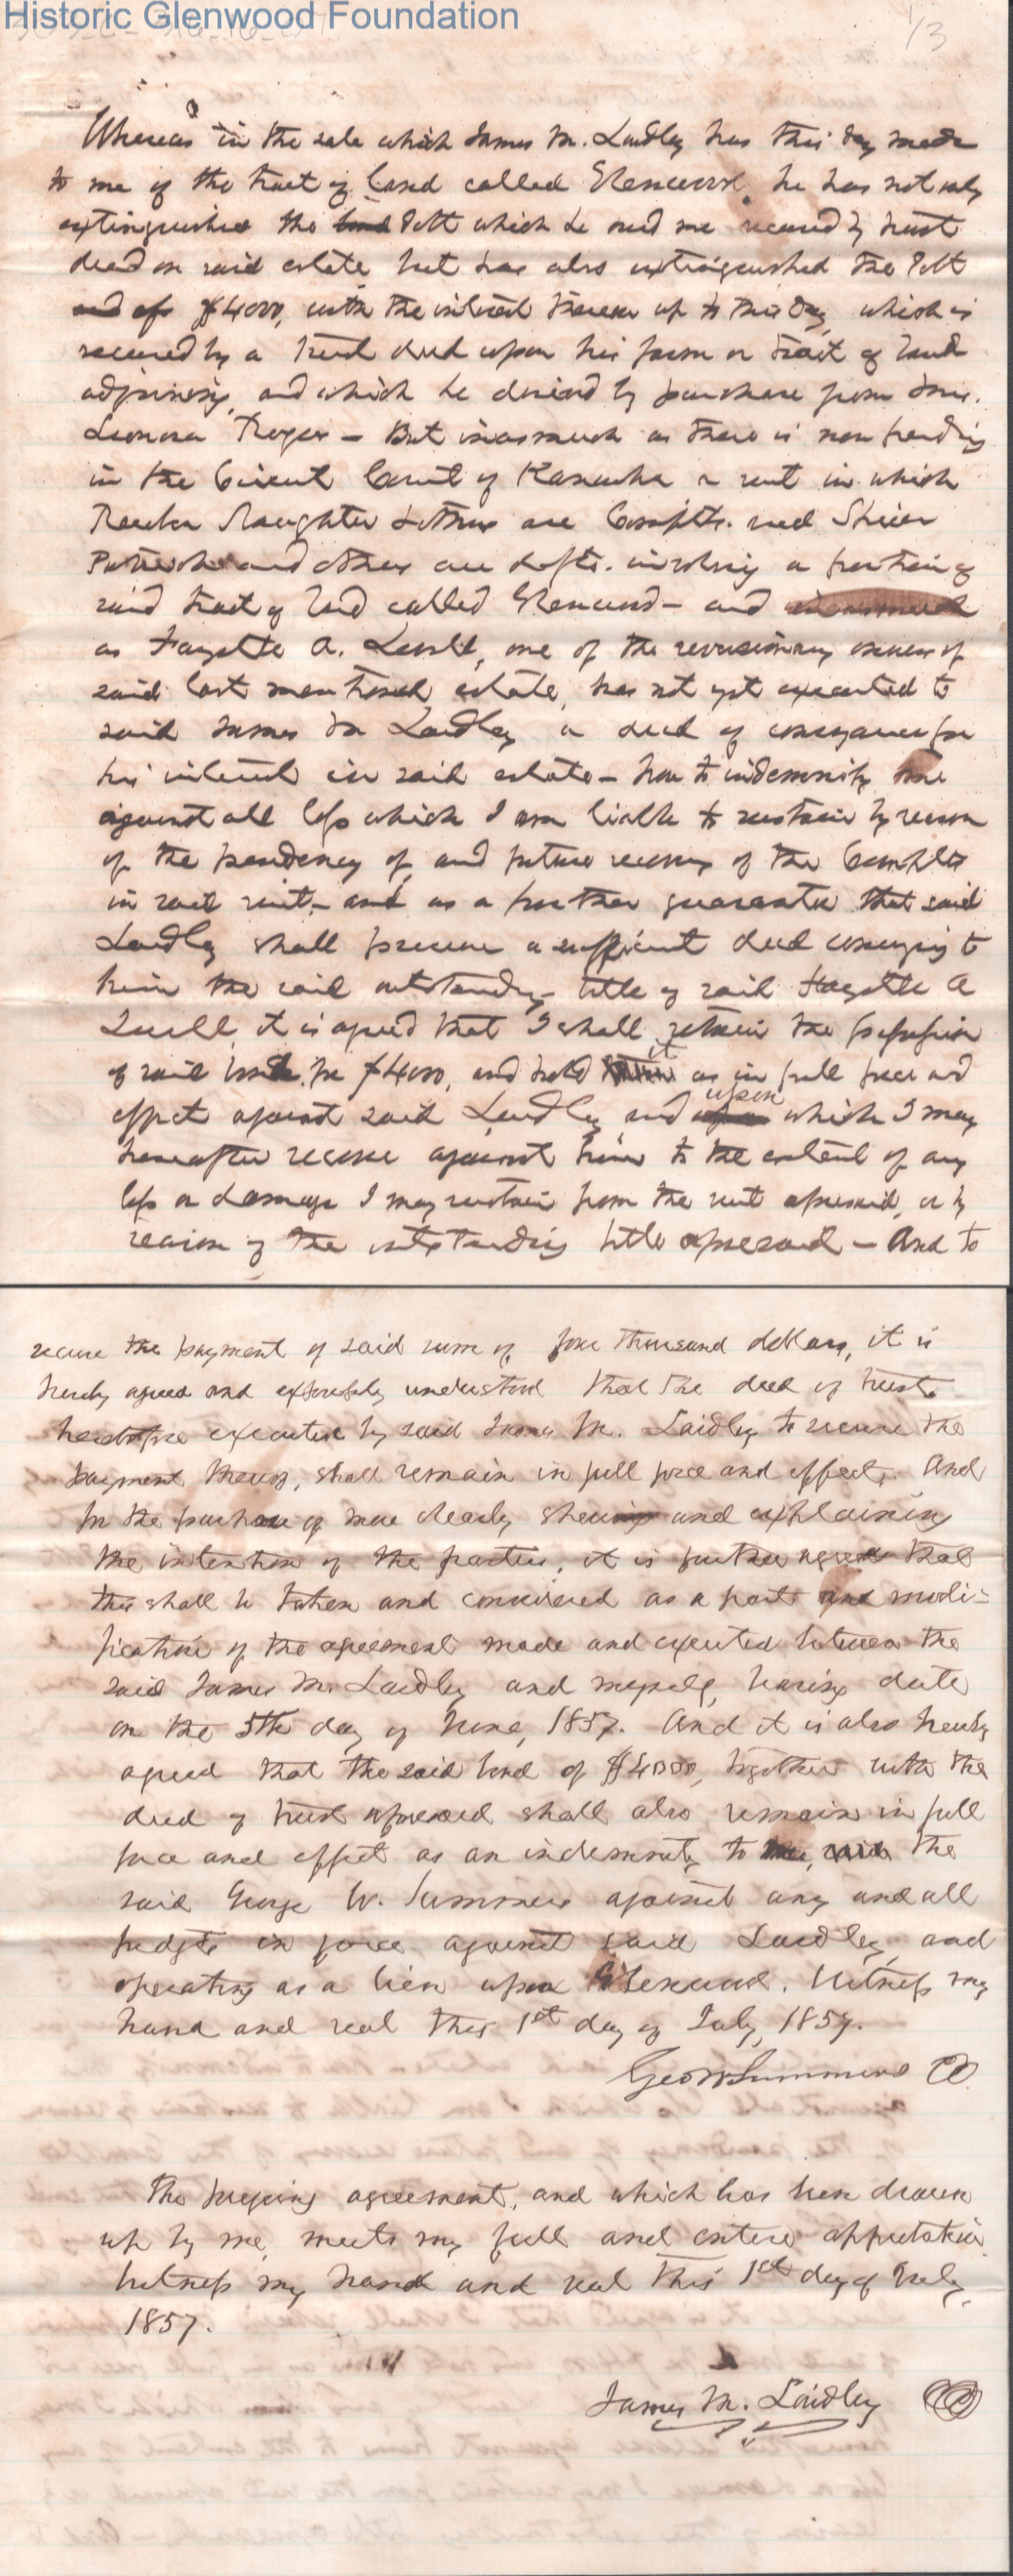 Historic Glenwood Foundation
1/3
Whereas in the sale which James M. Laidley has this day made
to me of the tract of land called Glenwood, he has not only
extinguished the debt which he owed me secured by trust
deed on said estate but has also extinguished the debt
of $4000, with the interest thereon up to this day, which is
secured by a trust deed upon his farm or tract of land
adjoining, and which he derived by purchase from Mrs.
Leonora Rogers – But inasmuch as there is now pending
in the Circuit Court of Kanawha a suit in which
Reuben Slaughter & others are Complts. and
and others are defts. involving a portion of
said tract of land called Glenwood – and inasmuch
as Fayette A. Lovell, one of the reversionary owners of
said last mentioned estate, has not yet executed to
said James M Laidley a deed of conveyance for
his interest in said estate – now to indemnify me
against all loss which I am liable to sustain by reason
of the pendency of, and future recovery of the Complts
in said suit, – and as a further guarantee that said
Laidley shall procure a sufficient deed conveying to
him the said outstanding title of said Fayette A
Lovell, it is agreed that I shall retain the possession
of said bond for $4000, and hold it as in full force and
effect against said Laidley and upon which I may
hereafter recover against him to the extent of any
loss or damage I may sustain from the suit aforesaid, or by
reason of the outstanding title aforesaid – And to
secure the payment of said sum of four thousand dollars, it is
hereby agreed and expressly understood that the deed of trust
heretofore executed by said James M. Laidley to secure the
payment thereof, shall remain in full force and effect. And
for the purpose of more clearly shewing and explaining
the intention of the parties, it is further agreed that
this shall be taken and considered as a part and modi-
fication of the agreement made and executed between the
said James M. Laidley and myself, bearing date
on the 5th day of June, 1857. And it is also hereby
agreed that the said bond of $4000, together with the
deed of trust aforesaid shall also remain in full
force and effect as an indemnity to the
said George W. Summers against any and all
judgts in force against said Laidley and
operating as a lien upon Glenwood. Witness my
hand and seal this 1st day of July, 1857.
Geo W Summers
The foregoing agreement, and which has been drawn
up by me, meets my full and entire approbation.
Witness my hand and seal this 1st day of July,
1857.
James M. Laidley